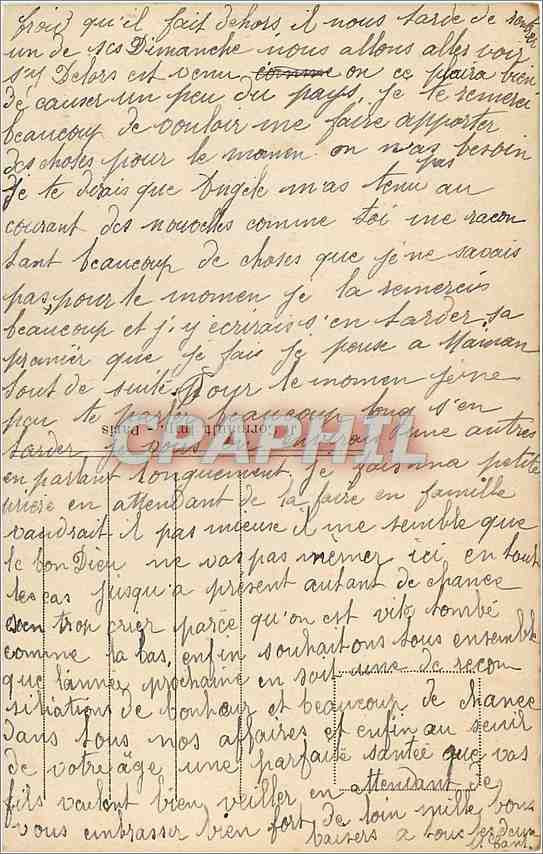 froid qu'il fait dehors, il nous tarde de rentrer
un de ses Dimanche nous allons aller voir
si Delors est venu on ce plaira bien
de causer un peu du pays, je te remerci
beaucoup de vouloir me faire apporter
des choses pour le momen on n'as pas besoin
Je te dirais que Angele m'as tenu au
courant des nouvelles comme toi me racon
tant beaucoup de choses que je ne savais
pas, pour le momen je la remercis
beaucoup et j'y écrirais s'en tarder, sa
premier que je fais je pense a Maman
tout de suite. Pour le momen je ne
peu te beaucoup long s'en
tarder une autres
CPAPHIL
en parlant longuement. Je fais ma petite
en attendant de la faire en famille
vaudrait il pas mieux il me semble que
le bon Dieu ne vas pas ici en tout
les cas jusqu'a présent autant de chance
s'en trop crier parce qu'on est vite tombé
comme la bas, enfin souhaitons tous ensemble
que l'année prochaine en soit une de recon
siliations de bonheur et beaucoup de chance
dans tous nos affaires et enfin au
de votre âge une parfaite santée que vos
fils veulent bien veiller en attendant de
vous embrasser bien fort de loin mille bons
baisers a tous les deux